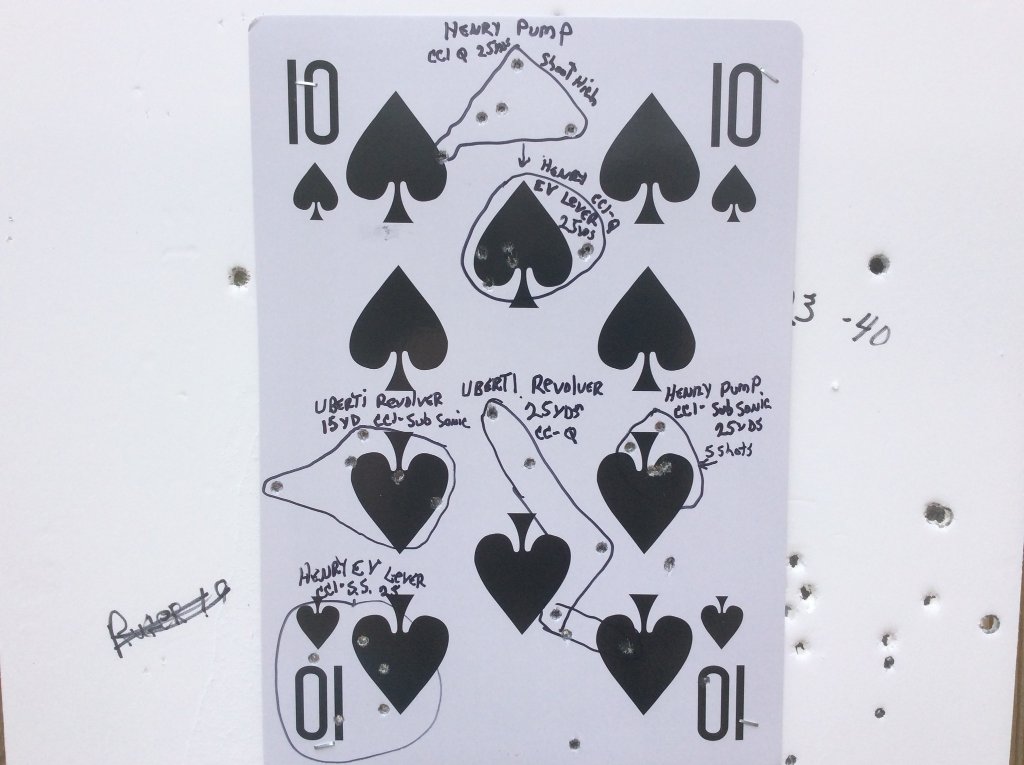 HENRY PUMP
CCI Q 25YDS
Shoot High
10
10
HENRY CCI-Q
EV LEVER
25YDS
23 -40
UBERTI REVOLVER
15YD CCI-Sub Sonic
UBERTI REVOLVER
25YDS
CC-Q
HENRY PUMP
CCI-Sub Sonic
25YDS
5 Shots
HENRY EV LEVER
CCI-S.S. 25
10
10